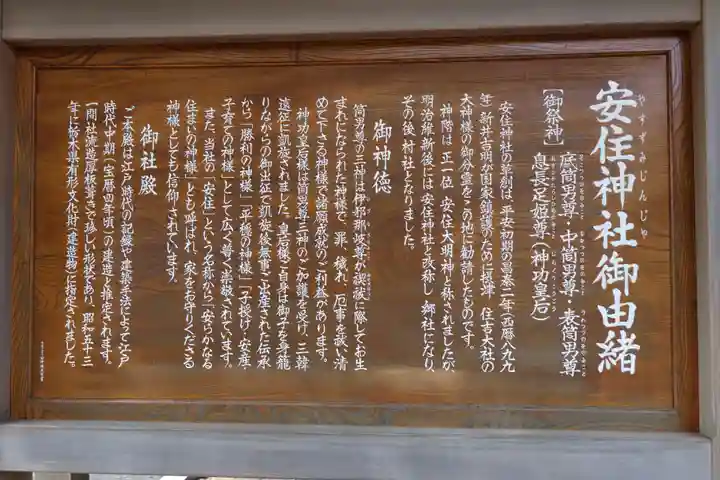 安住神社御由緒
やすずみじんじゃ
【御祭神】底筒男尊・中筒男尊・表筒男尊
息長足姫尊(神功皇后)
安住神社の草創は、平安初期の昌泰二年(西暦八九九
年)新井吉明が国家鎮護のために摂津 住吉大社の
大神様の御分霊をこの地に勧請したものです。
神階は正一位 安住大明神と称されましたが
明治維新後には 安住神社と改称し 郷社になり、
その後 村社となりました。
御神徳
筒男尊の三神は伊邪那岐尊が禊祓に際してお生
まれになられた神様で、罪、穢れ、厄事を祓い清
めて下さる神様で諸願成就のご利益があります。
神功皇后様は筒男尊三神のご加護を受け、三韓
遠征に凱旋されました。皇后様ご自身は御子を再籠
りながらの御出征で凱旋後無事ご出産された伝承
から「勝利の神様」「平穏の神様」「子授け・安産・
子育ての神様」として広く尊く崇敬されています。
また、当社の「安住」という名称から「安らかなる
住まいの神様」とも呼ばれ、家をお守りくださる
神様としても信仰されています。
御社殿
ご本殿は江戸時代の記録や建築手法によって江戸
時代中期(宝暦四年頃)の建造と推定されます。
一間社流造厚板葺きで珍しい形状であり、昭和五十三
年に栃木県有形文化財(建造物)に指定されました。